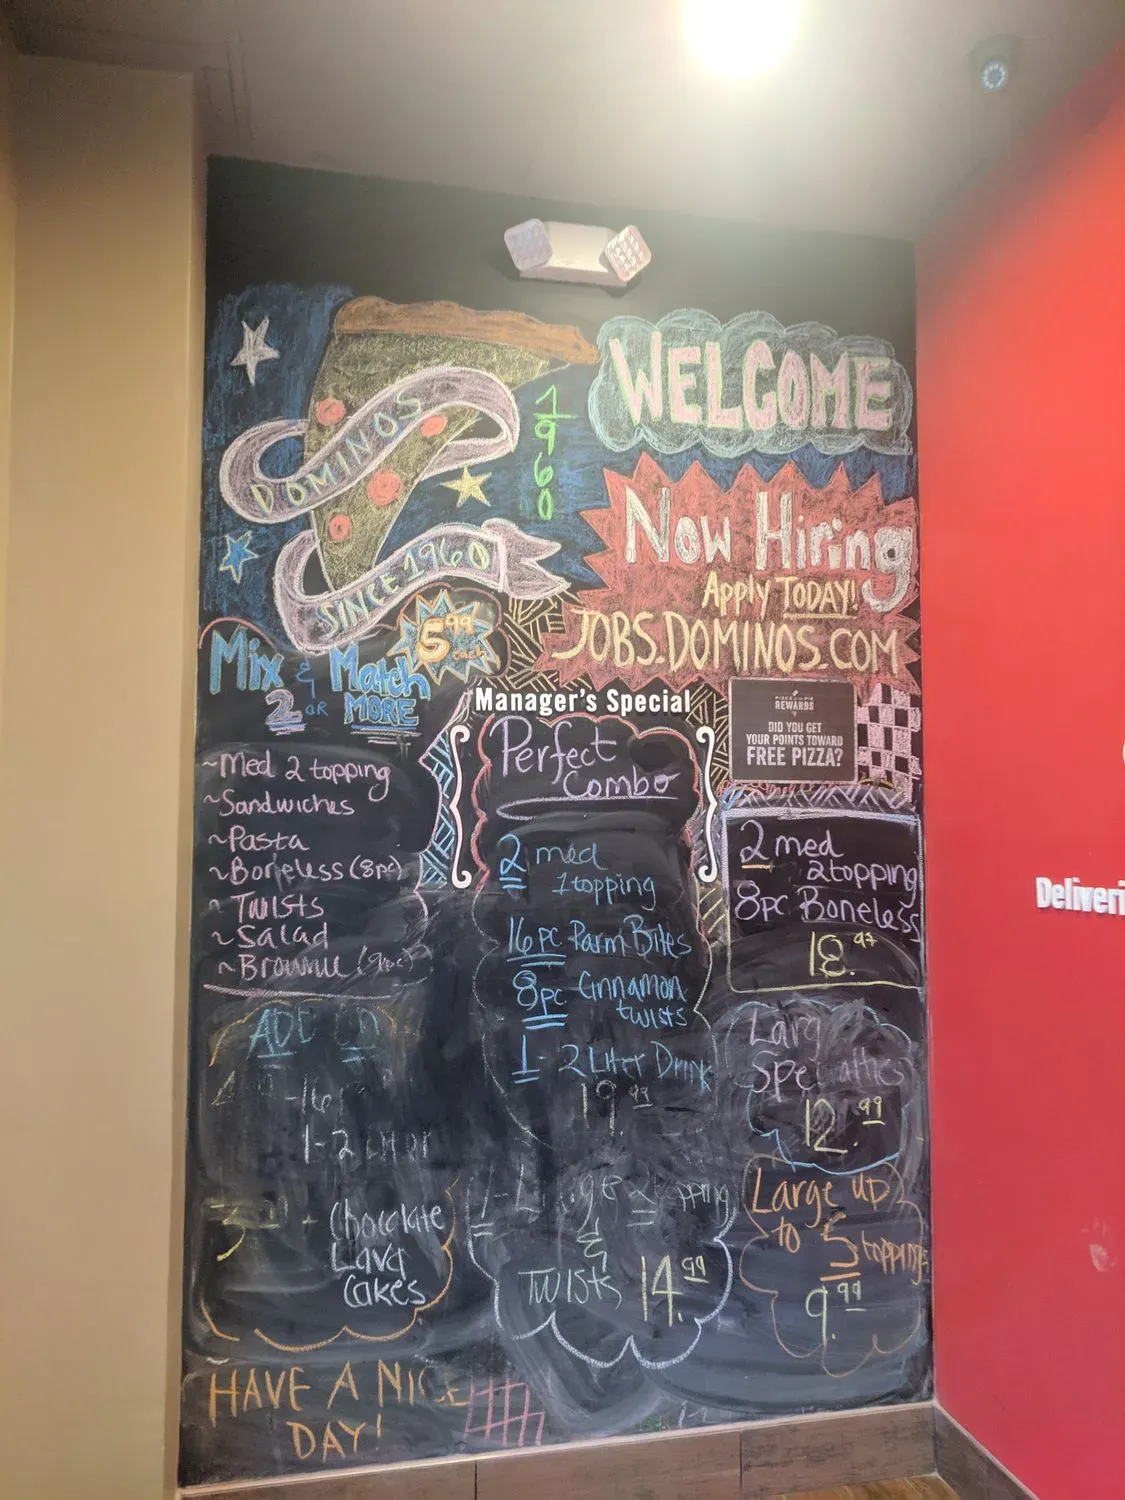 DOMINOS
SINCE 1960
1960
WELCOME
Now Hiring
Apply TODAY!
JOBS.DOMINOS.COM
Mix & Match
5.99 each
2 OR MORE
~Med 2 topping
~Sandwiches
~Pasta
~Boneless (8pc)
~Twists
~Salad
~Brownie (9pc)
ADD
-16
1-2
Chocolate
Lava
Cakes
HAVE A NICE
DAY!
Manager's Special
Perfect
Combo
2 med
1 topping
16pc Parm Bites
8pc Cinnamon
twists
1- 2 Liter Drink
19.99
1- Large 2 topping
&
Twists 14.99
REWARDS
DID YOU GET
YOUR POINTS TOWARD
FREE PIZZA?
2 med
2topping
8pc Boneless
18.97
Large
Specialties
12.99
Large up
to 5 toppings
9.99
Deliveri